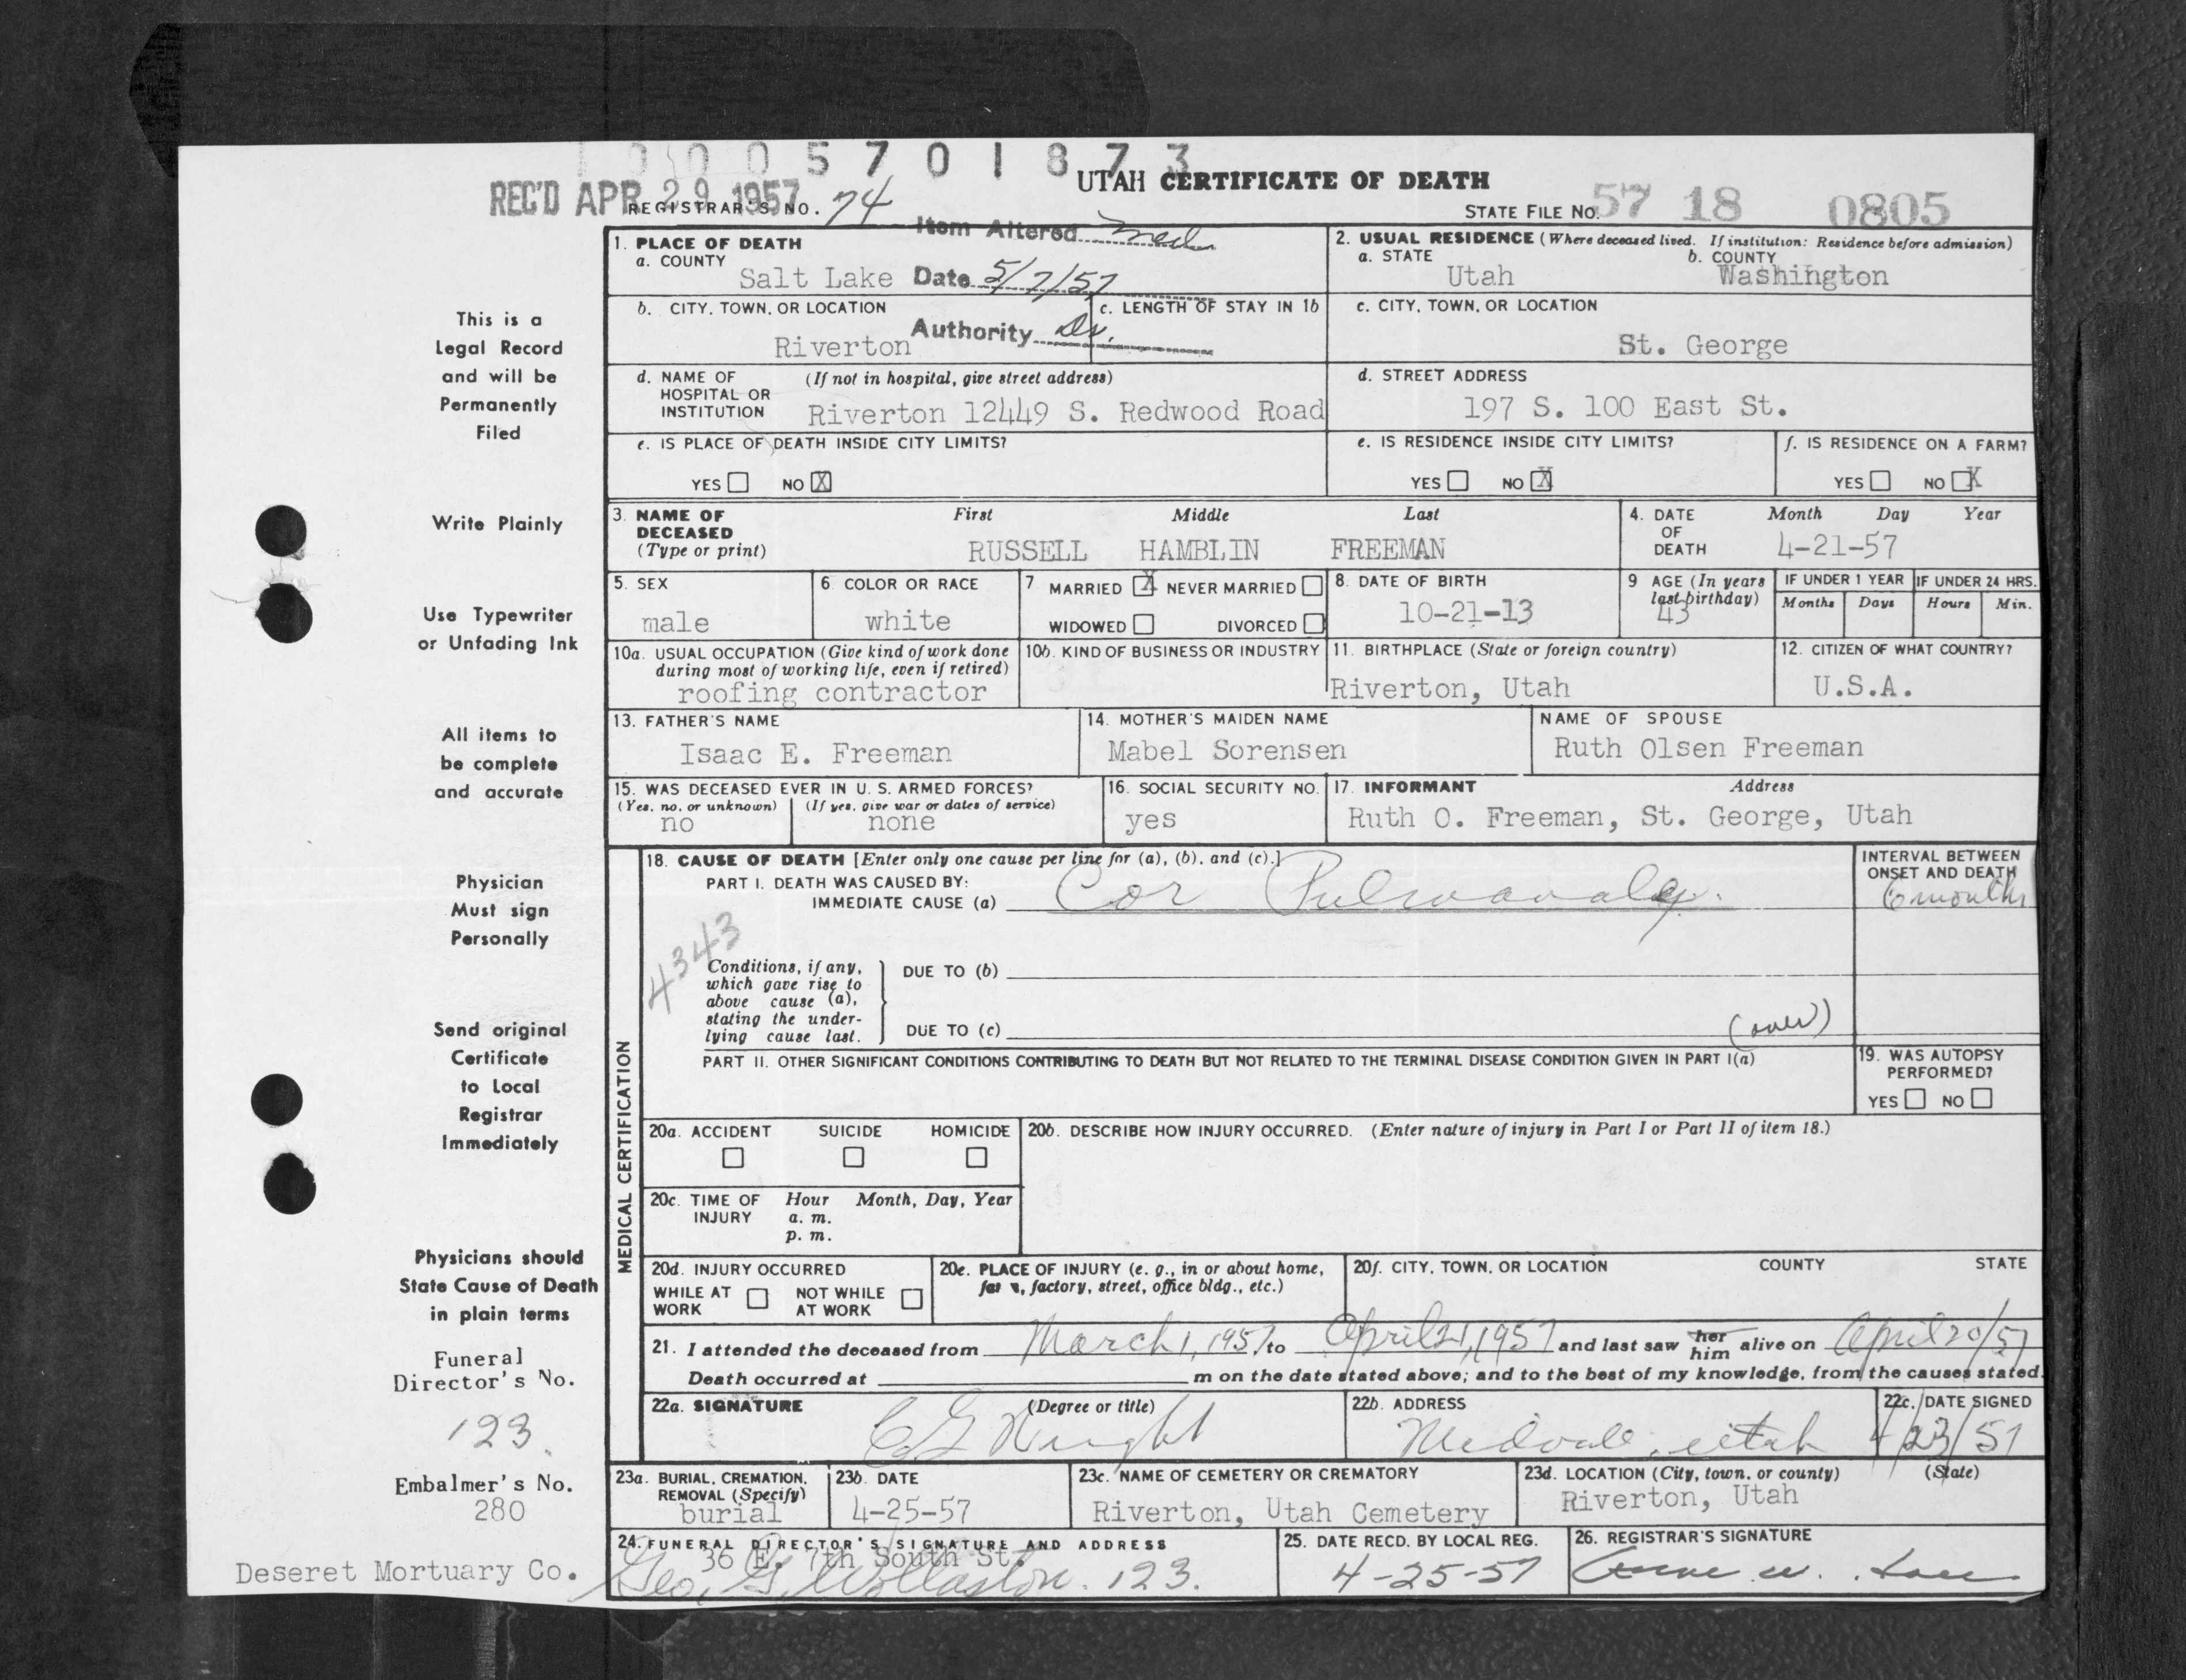 1 0 0 0 5 7 0 1 8 7 3
UTAH CERTIFICATE OF DEATH
REC'D APR 29 1957
REGISTRAR'S NO. 74
STATE FILE NO. 57 18 0805
Item Altered Med
Date 5/7/57
Authority Dr.
1. PLACE OF DEATH
a. COUNTY
Salt Lake
2. USUAL RESIDENCE (Where deceased lived. If institution: Residence before admission)
a. STATE
Utah
b. COUNTY
Washington
b. CITY, TOWN, OR LOCATION
Riverton
c. LENGTH OF STAY IN 1b
c. CITY, TOWN, OR LOCATION
St. George
d. NAME OF HOSPITAL OR INSTITUTION (If not in hospital, give street address)
Riverton 12449 S. Redwood Road
d. STREET ADDRESS
197 S. 100 East St.
e. IS PLACE OF DEATH INSIDE CITY LIMITS?
YES NO X
e. IS RESIDENCE INSIDE CITY LIMITS?
YES NO X
f. IS RESIDENCE ON A FARM?
YES NO X
3. NAME OF DECEASED (Type or print)
First Middle Last
RUSSELL HAMBLIN FREEMAN
4. DATE OF DEATH
Month Day Year
4-21-57
5. SEX
male
6. COLOR OR RACE
white
7. MARRIED X NEVER MARRIED
WIDOWED DIVORCED
8. DATE OF BIRTH
10-21-13
9 AGE (In years last birthday)
43
IF UNDER 1 YEAR
Months Days
IF UNDER 24 HRS.
Hours Min.
10a. USUAL OCCUPATION (Give kind of work done during most of working life, even if retired)
roofing contractor
10b. KIND OF BUSINESS OR INDUSTRY
11. BIRTHPLACE (State or foreign country)
Riverton, Utah
12. CITIZEN OF WHAT COUNTRY?
U.S.A.
13. FATHER'S NAME
Isaac E. Freeman
14. MOTHER'S MAIDEN NAME
Mabel Sorensen
NAME OF SPOUSE
Ruth Olsen Freeman
15. WAS DECEASED EVER IN U. S. ARMED FORCES?
(Yes, no, or unknown) (If yes, give war or dates of service)
no none
16. SOCIAL SECURITY NO.
yes
17. INFORMANT Address
Ruth O. Freeman, St. George, Utah
MEDICAL CERTIFICATION
18. CAUSE OF DEATH [Enter only one cause per line for (a), (b), and (c).]
PART I. DEATH WAS CAUSED BY:
IMMEDIATE CAUSE (a) Cor Pulmonaly.
INTERVAL BETWEEN ONSET AND DEATH
6 months
4343
Conditions, if any, which gave rise to above cause (a), stating the underlying cause last.
DUE TO (b)
DUE TO (c) (over)
PART II. OTHER SIGNIFICANT CONDITIONS CONTRIBUTING TO DEATH BUT NOT RELATED TO THE TERMINAL DISEASE CONDITION GIVEN IN PART I(a)
19. WAS AUTOPSY PERFORMED?
YES NO
20a. ACCIDENT SUICIDE HOMICIDE
20b. DESCRIBE HOW INJURY OCCURRED. (Enter nature of injury in Part I or Part II of item 18.)
20c. TIME OF INJURY Hour Month, Day, Year
a. m.
p. m.
20d. INJURY OCCURRED
WHILE AT WORK NOT WHILE AT WORK
20e. PLACE OF INJURY (e. g., in or about home, farm, factory, street, office bldg., etc.)
20f. CITY, TOWN, OR LOCATION COUNTY STATE
21. I attended the deceased from March 1, 1957 to April 21, 1957 and last saw her him alive on April 20/57
Death occurred at m on the date stated above; and to the best of my knowledge, from the causes stated.
22a. SIGNATURE (Degree or title)
C G Wright
22b. ADDRESS
Midvale, Utah
22c. DATE SIGNED
4/23/57
23a. BURIAL, CREMATION, REMOVAL (Specify)
burial
23b. DATE
4-25-57
23c. NAME OF CEMETERY OR CREMATORY
Riverton, Utah Cemetery
23d. LOCATION (City, town, or county) (State)
Riverton, Utah
24. FUNERAL DIRECTOR'S SIGNATURE AND ADDRESS
36 E. 7th South St.
Geo. G. Wollaston. 123.
25. DATE RECD. BY LOCAL REG.
4-25-57
26. REGISTRAR'S SIGNATURE
This is a
Legal Record
and will be
Permanently
Filed
Write Plainly
Use Typewriter
or Unfading Ink
All items to
be complete
and accurate
Physician
Must sign
Personally
Send original
Certificate
to Local
Registrar
Immediately
Physicians should
State Cause of Death
in plain terms
Funeral
Director's No.
123
Embalmer's No.
280
Deseret Mortuary Co.